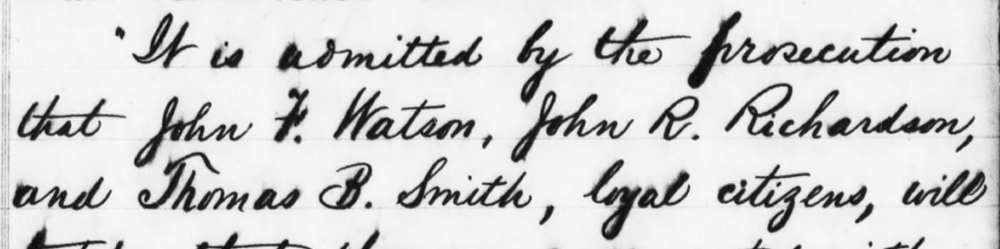 "It is admitted by the prosecution
that John F. Watson, John R. Richardson,
and Thomas B. Smith, loyal citizens, will